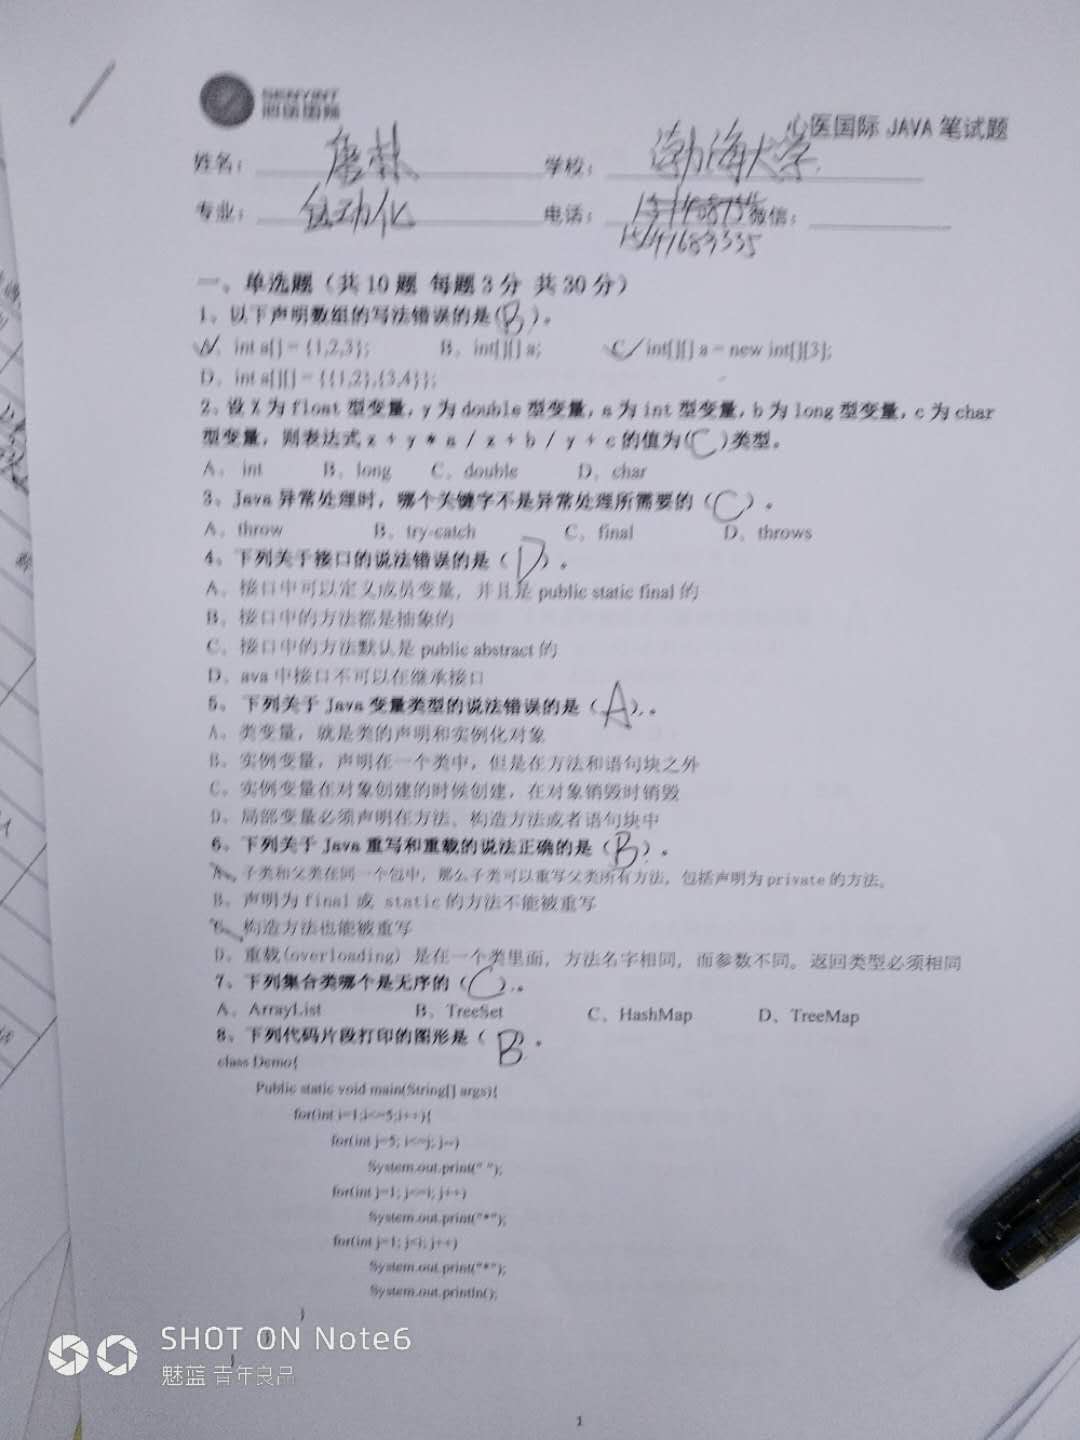 SENYINT
心医国际
心医国际 JAVA 笔试题
姓名： 学校：渤海大学
专业：自动化 电话： 微信：
15141683335
一、单选题（共10题 每题3分 共30分）
1、以下声明数组的写法错误的是(B)。
A、int a[] = {1,2,3}; B、int[][] a; C、int[][] a = new int[][3];
D、int a[][] = {{1,2},{3,4}};
2、设 X 为 float 型变量，y 为 double 型变量，a 为 int 型变量，b 为 long 型变量，c 为 char
型变量，则表达式 x + y * a / x + b / y + c 的值为(C)类型。
A、int B、long C、double D、char
3、Java 异常处理时，哪个关键字不是异常处理所需要的（C）。
A、throw B、try-catch C、final D、throws
4、下列关于接口的说法错误的是（D）。
A、接口中可以定义成员变量，并且是 public static final 的
B、接口中的方法都是抽象的
C、接口中的方法默认是 public abstract 的
D、ava 中接口不可以在继承接口
5、下列关于 Java 变量类型的说法错误的是（A）。
A、类变量，就是类的声明和实例化对象
B、实例变量，声明在一个类中，但是在方法和语句块之外
C、实例变量在对象创建的时候创建，在对象销毁时销毁
D、局部变量必须声明在方法、构造方法或者语句块中
6、下列关于 Java 重写和重载的说法正确的是（B）。
A、子类和父类在同一个包中，那么子类可以重写父类所有方法，包括声明为 private 的方法。
B、声明为 final 或 static 的方法不能被重写
C、构造方法也能被重写
D、重载(overloading) 是在一个类里面，方法名字相同，而参数不同。返回类型必须相同
7、下列集合类哪个是无序的（C）。
A、ArrayList B、TreeSet C、HashMap D、TreeMap
8、下列代码片段打印的图形是（B）。
class Demo{
Public static void main(String[] args){
for(int i=1;i<=5;i++){
for(int j=5; i<=j; j--)
System.out.print(" ");
for(int j=1; j<=i; j++)
System.out.print("*");
for(int j=1; j<i; j++)
System.out.print("*");
System.out.println();
}
}
}
SHOT ON Note6
魅蓝 青年良品
1